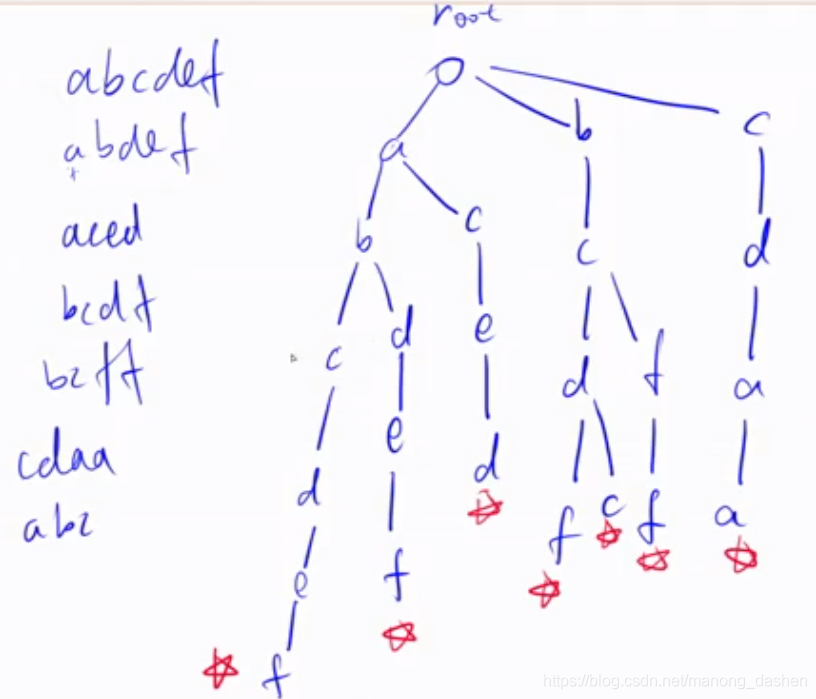 root
abcdef
abdef
aced
bcdf
bcff
cdaa
abc
a b c
b c c d
c d e d f a
d e d f c f a
e f
f
https://blog.csdn.net/manong_dashen